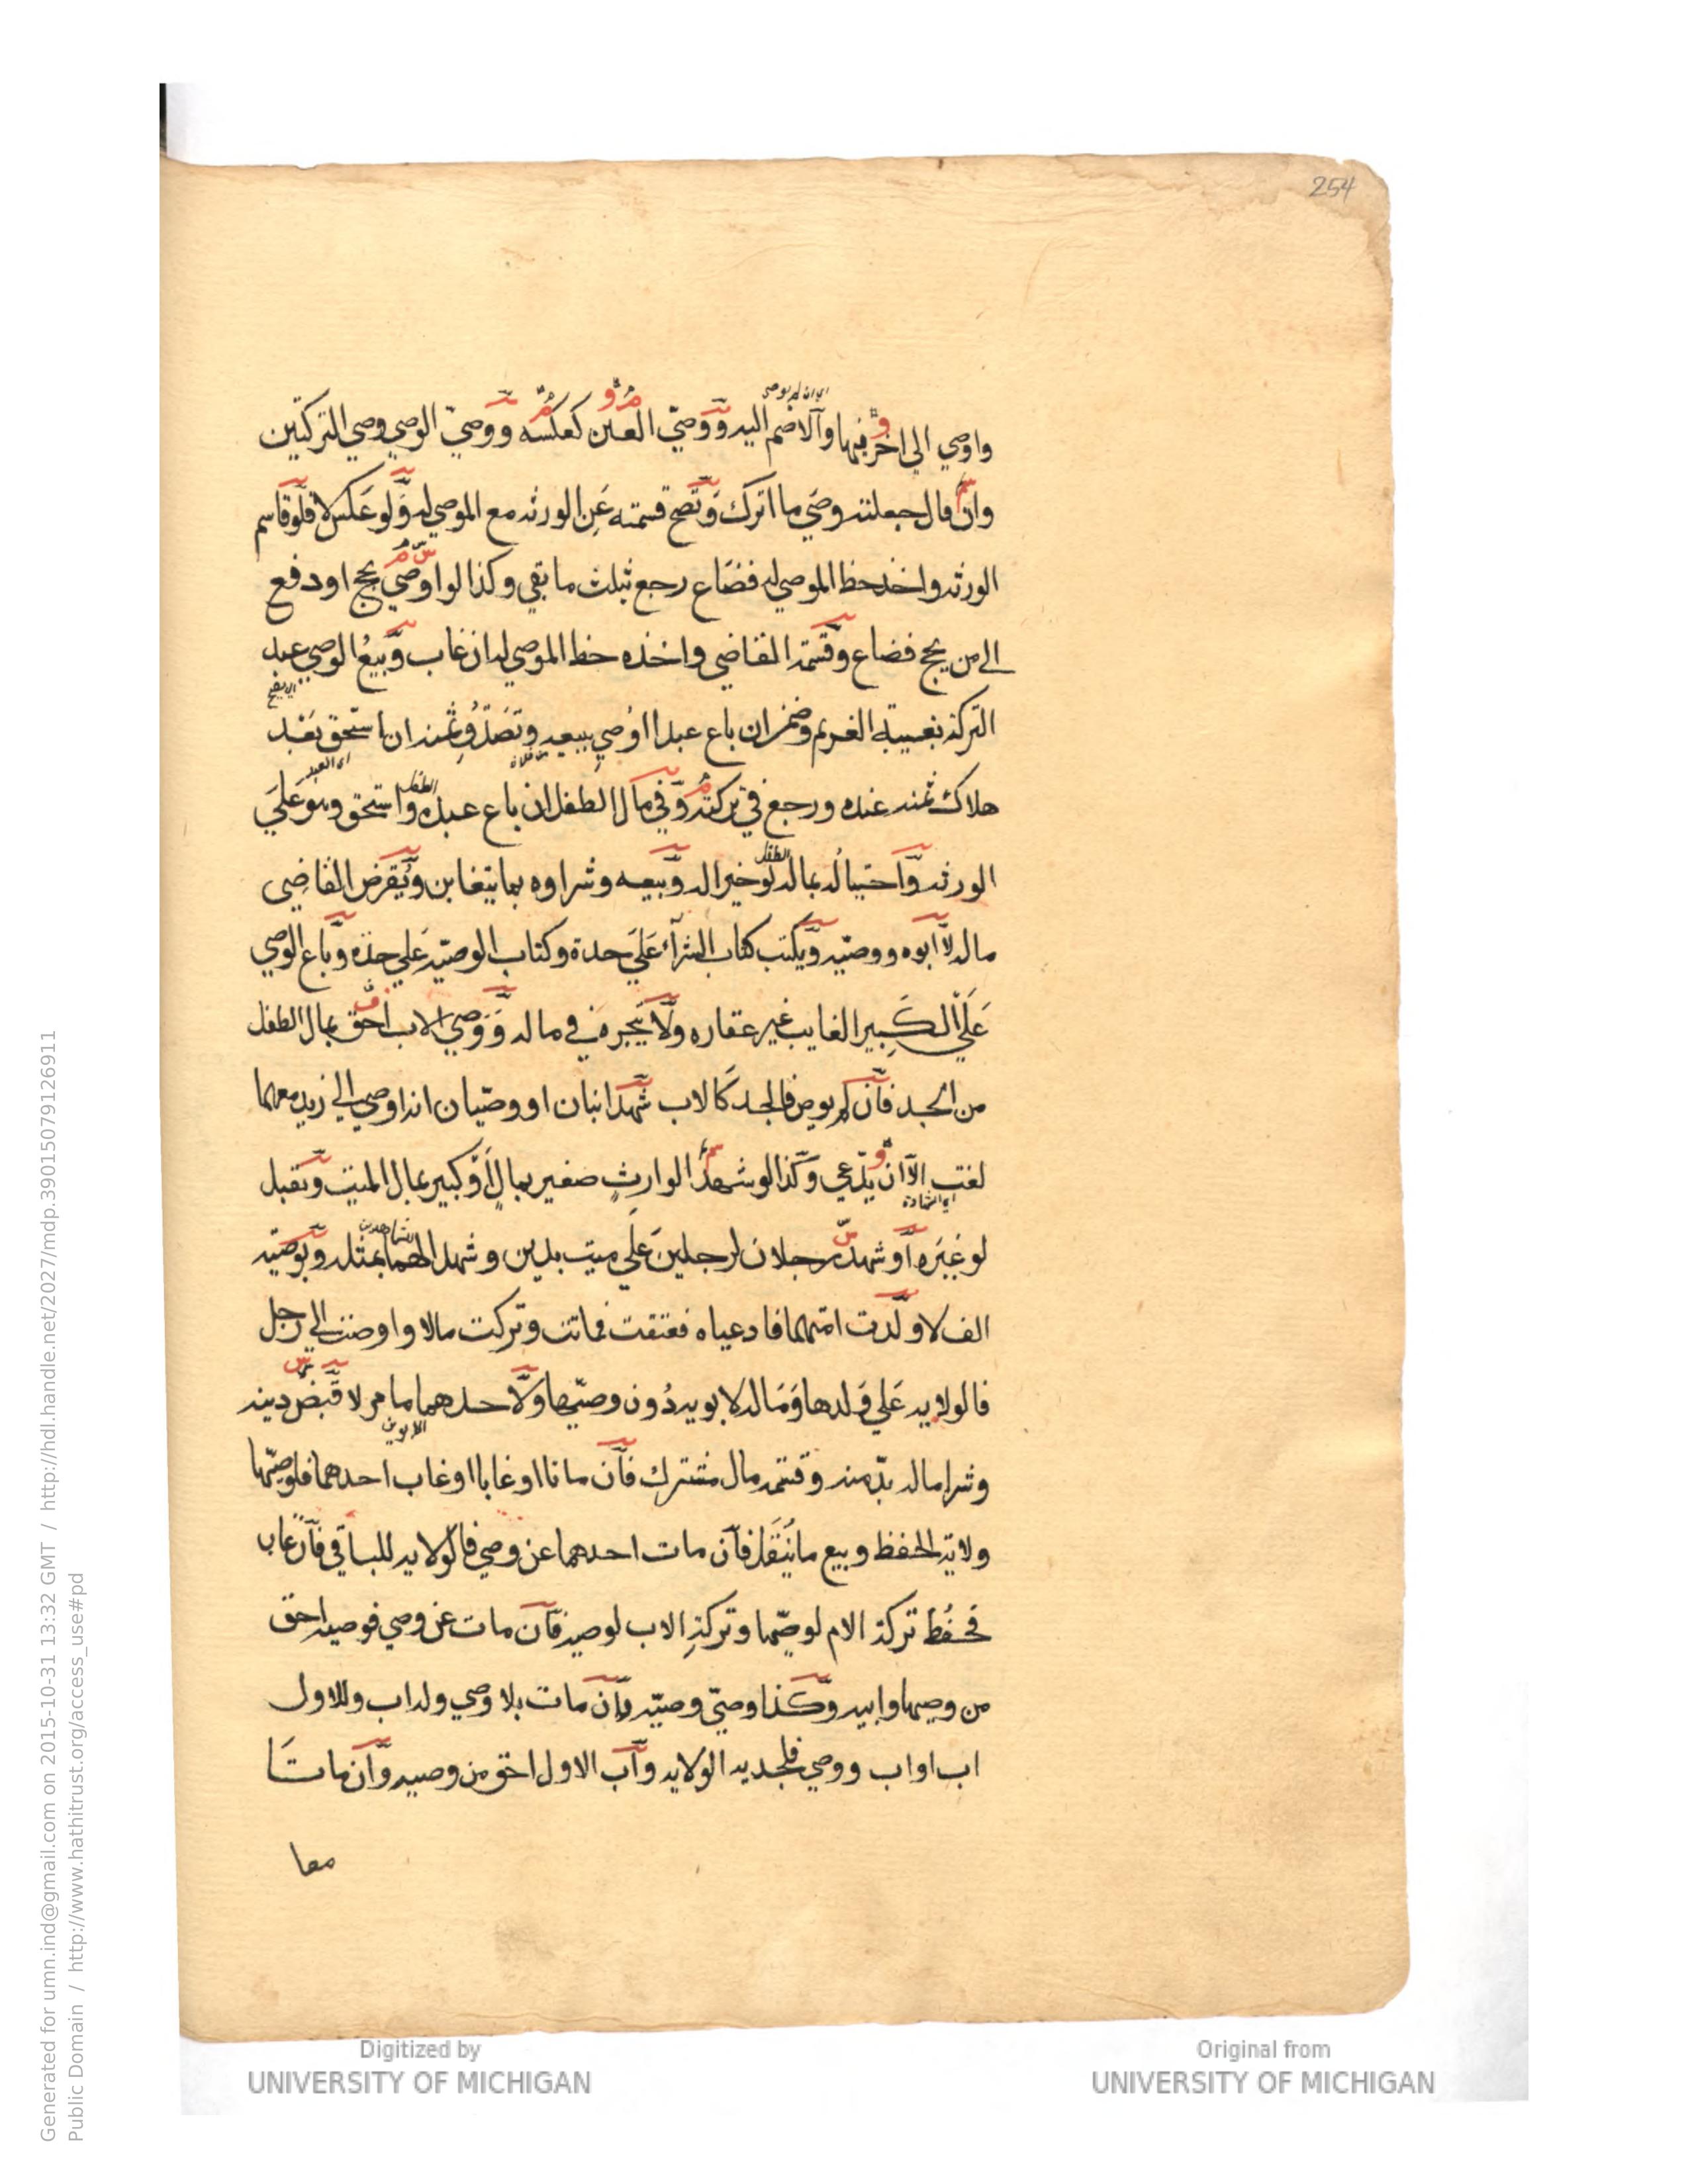 254
اي ان لم يوصي
واوصي الى اخر فيهما والا ضم اليه ووصيّ العين كعكسه ووصيّ الوصي وصي التركتين
وان قال جعلته وصي ما اترك وتصح قسمته عن الورثه مع الموصي له ولو عكس لا فلو قاسم
الورثه واخذ حظ الموصي له فضاع رجع بثلث ما بقي وكذا لو اوصي بحج او دفع
الى من يحج فضاع وقسمة القاضي واخذه حظ الموصي له ان غاب وبيع الوصي عبد
التركة بغيبة الغريم وضمن ان باع عبدا اوصي ببيعه وتصدق ثمنه ان استحق بعد
اي العبد
هلاك ثمنه عنده ورجع في تركته وفي مال الطفل ان باع عبده واستحق وهو علي
الطفل
الورثه واحتياله بماله لو خيرا له وبيعه وشراوه بما يتغابن ويقرض القاضي
الطفل
ماله لا ابوه ووصيه ويكتب كتاب الشرآء علي حدة وكتاب الوصيه علي حدة وباع الوصي
علي الكبير الغايب غير عقاره ولا يتجر في ماله ووصي الاب احق بمال الطفل
من الجد فان لم يوص فالجد كالاب شهد ابنان او وصيان انه اوصي الي زيد معهما
لغت الا ان يدعي وكذا لو شهدا لوارث صغير بمال او كبير بمال الميت وتقبل
اي الشهادة
لو غيره او شهد رجلان لرجلين علي ميت بدين وشهدا لهما بمثله وبوصيه
شاهدين
الف لا ولدت امتهما فادعياه فعتقت فماتت وتركت مالا واوصت الي رجل
فالولايه علي ولدها وماله لابويه دون وصيها ولاحدهما ما مر لا قبض دينه
الابوين
وشرا ماله بد منه وقسمه مال مشترك فان ماتا او غابا او غاب احدهما فلوصيها
ولاية الحفظ وبيع ما ينقل فان مات احدهما عن وصي فالولايه للباقي فان غاب
فحفظ تركة الام لوصيها وتركة الاب لوصيه فان مات عن وصي فوصيه احق
من وصيها وابيه وكذا وصي وصيه وان مات بلا وصي وله اب وللاول
اب او اب ووصي فلجديه الولايه واب الاول احق من وصيه وان ماتا
معا
Digitized by
UNIVERSITY OF MICHIGAN
Original from
UNIVERSITY OF MICHIGAN
Generated for umn.ind@gmail.com on 2015-10-31 13:32 GMT / http://hdl.handle.net/2027/mdp.39015079126911
Public Domain / http://www.hathitrust.org/access_use#pd